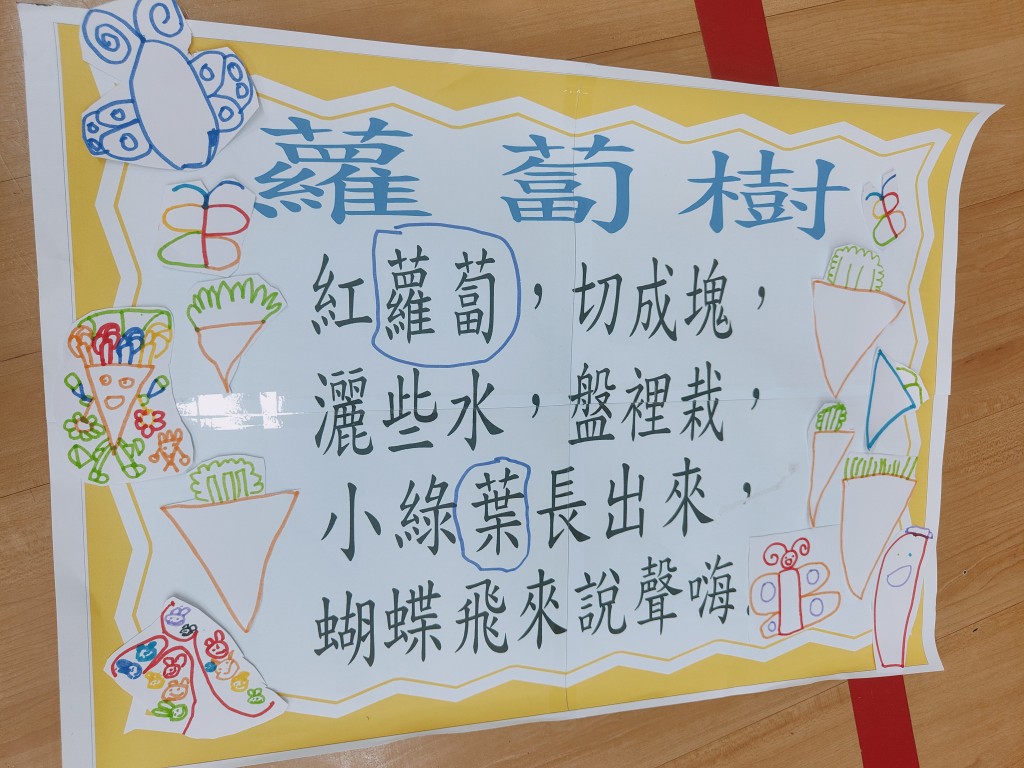 蘿蔔樹
紅蘿蔔，切成塊，
灑些水，盤裡栽，
小綠葉長出來，
蝴蝶飛來說聲嗨